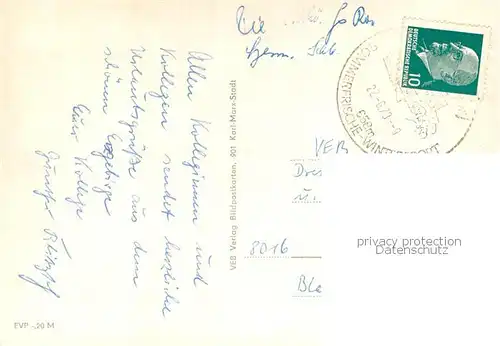 Allen Kolleginnen und
Kollegen sendet herzliche
Urlaubsgrüße aus dem
schönen Erzgebirge
Euer Kollege
Günther
EVP -,20 M
VEB Verlag Bildpostkarten, 901 Karl-Marx-Stadt
DEUTSCHE
DEMOKRATISCHE REPUBLIK
10
SOMMERFRISCHE-WINTERSPORT
VEB
Dres
u.
8016
Bla
privacy protection
Datenschutz